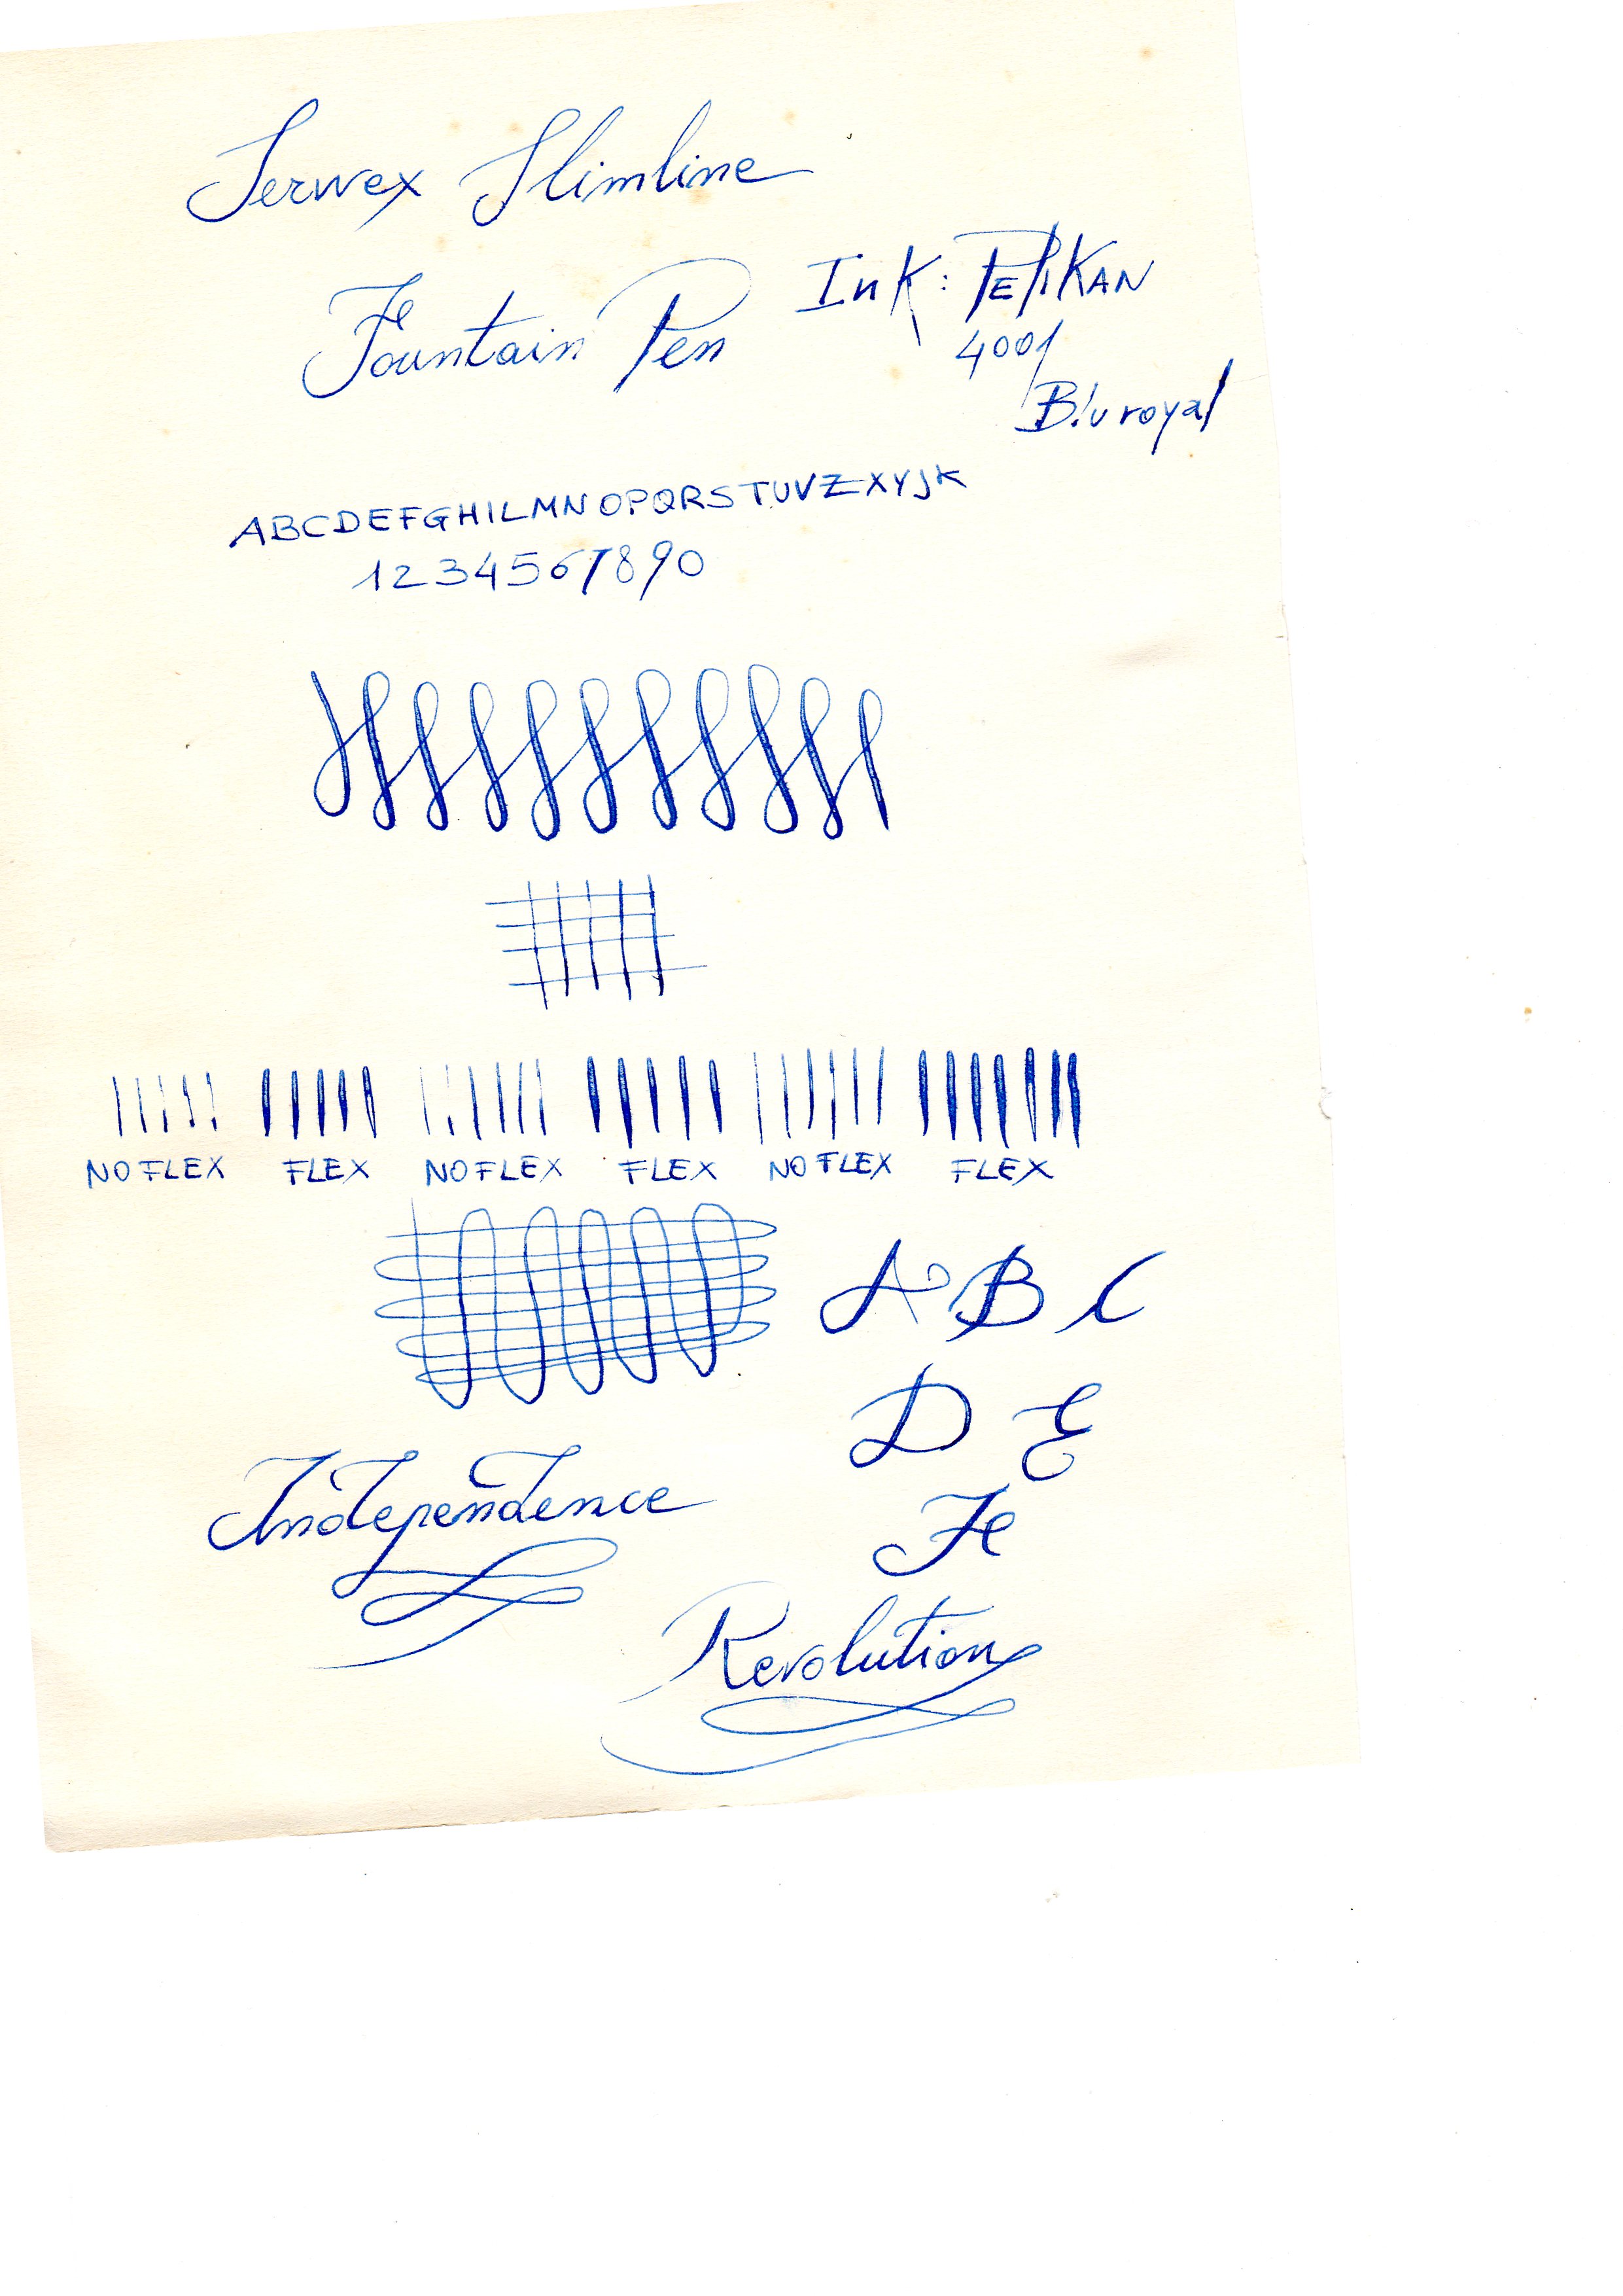 Serwex Slimline
Fountain Pen
Ink: PELIKAN
4001
Blu royal
ABCDEFGHILMNOPQRSTUVZXYJK
1234567890
NO FLEX FLEX NO FLEX FLEX NO FLEX FLEX
A B C
D E
F
Independence
Revolution